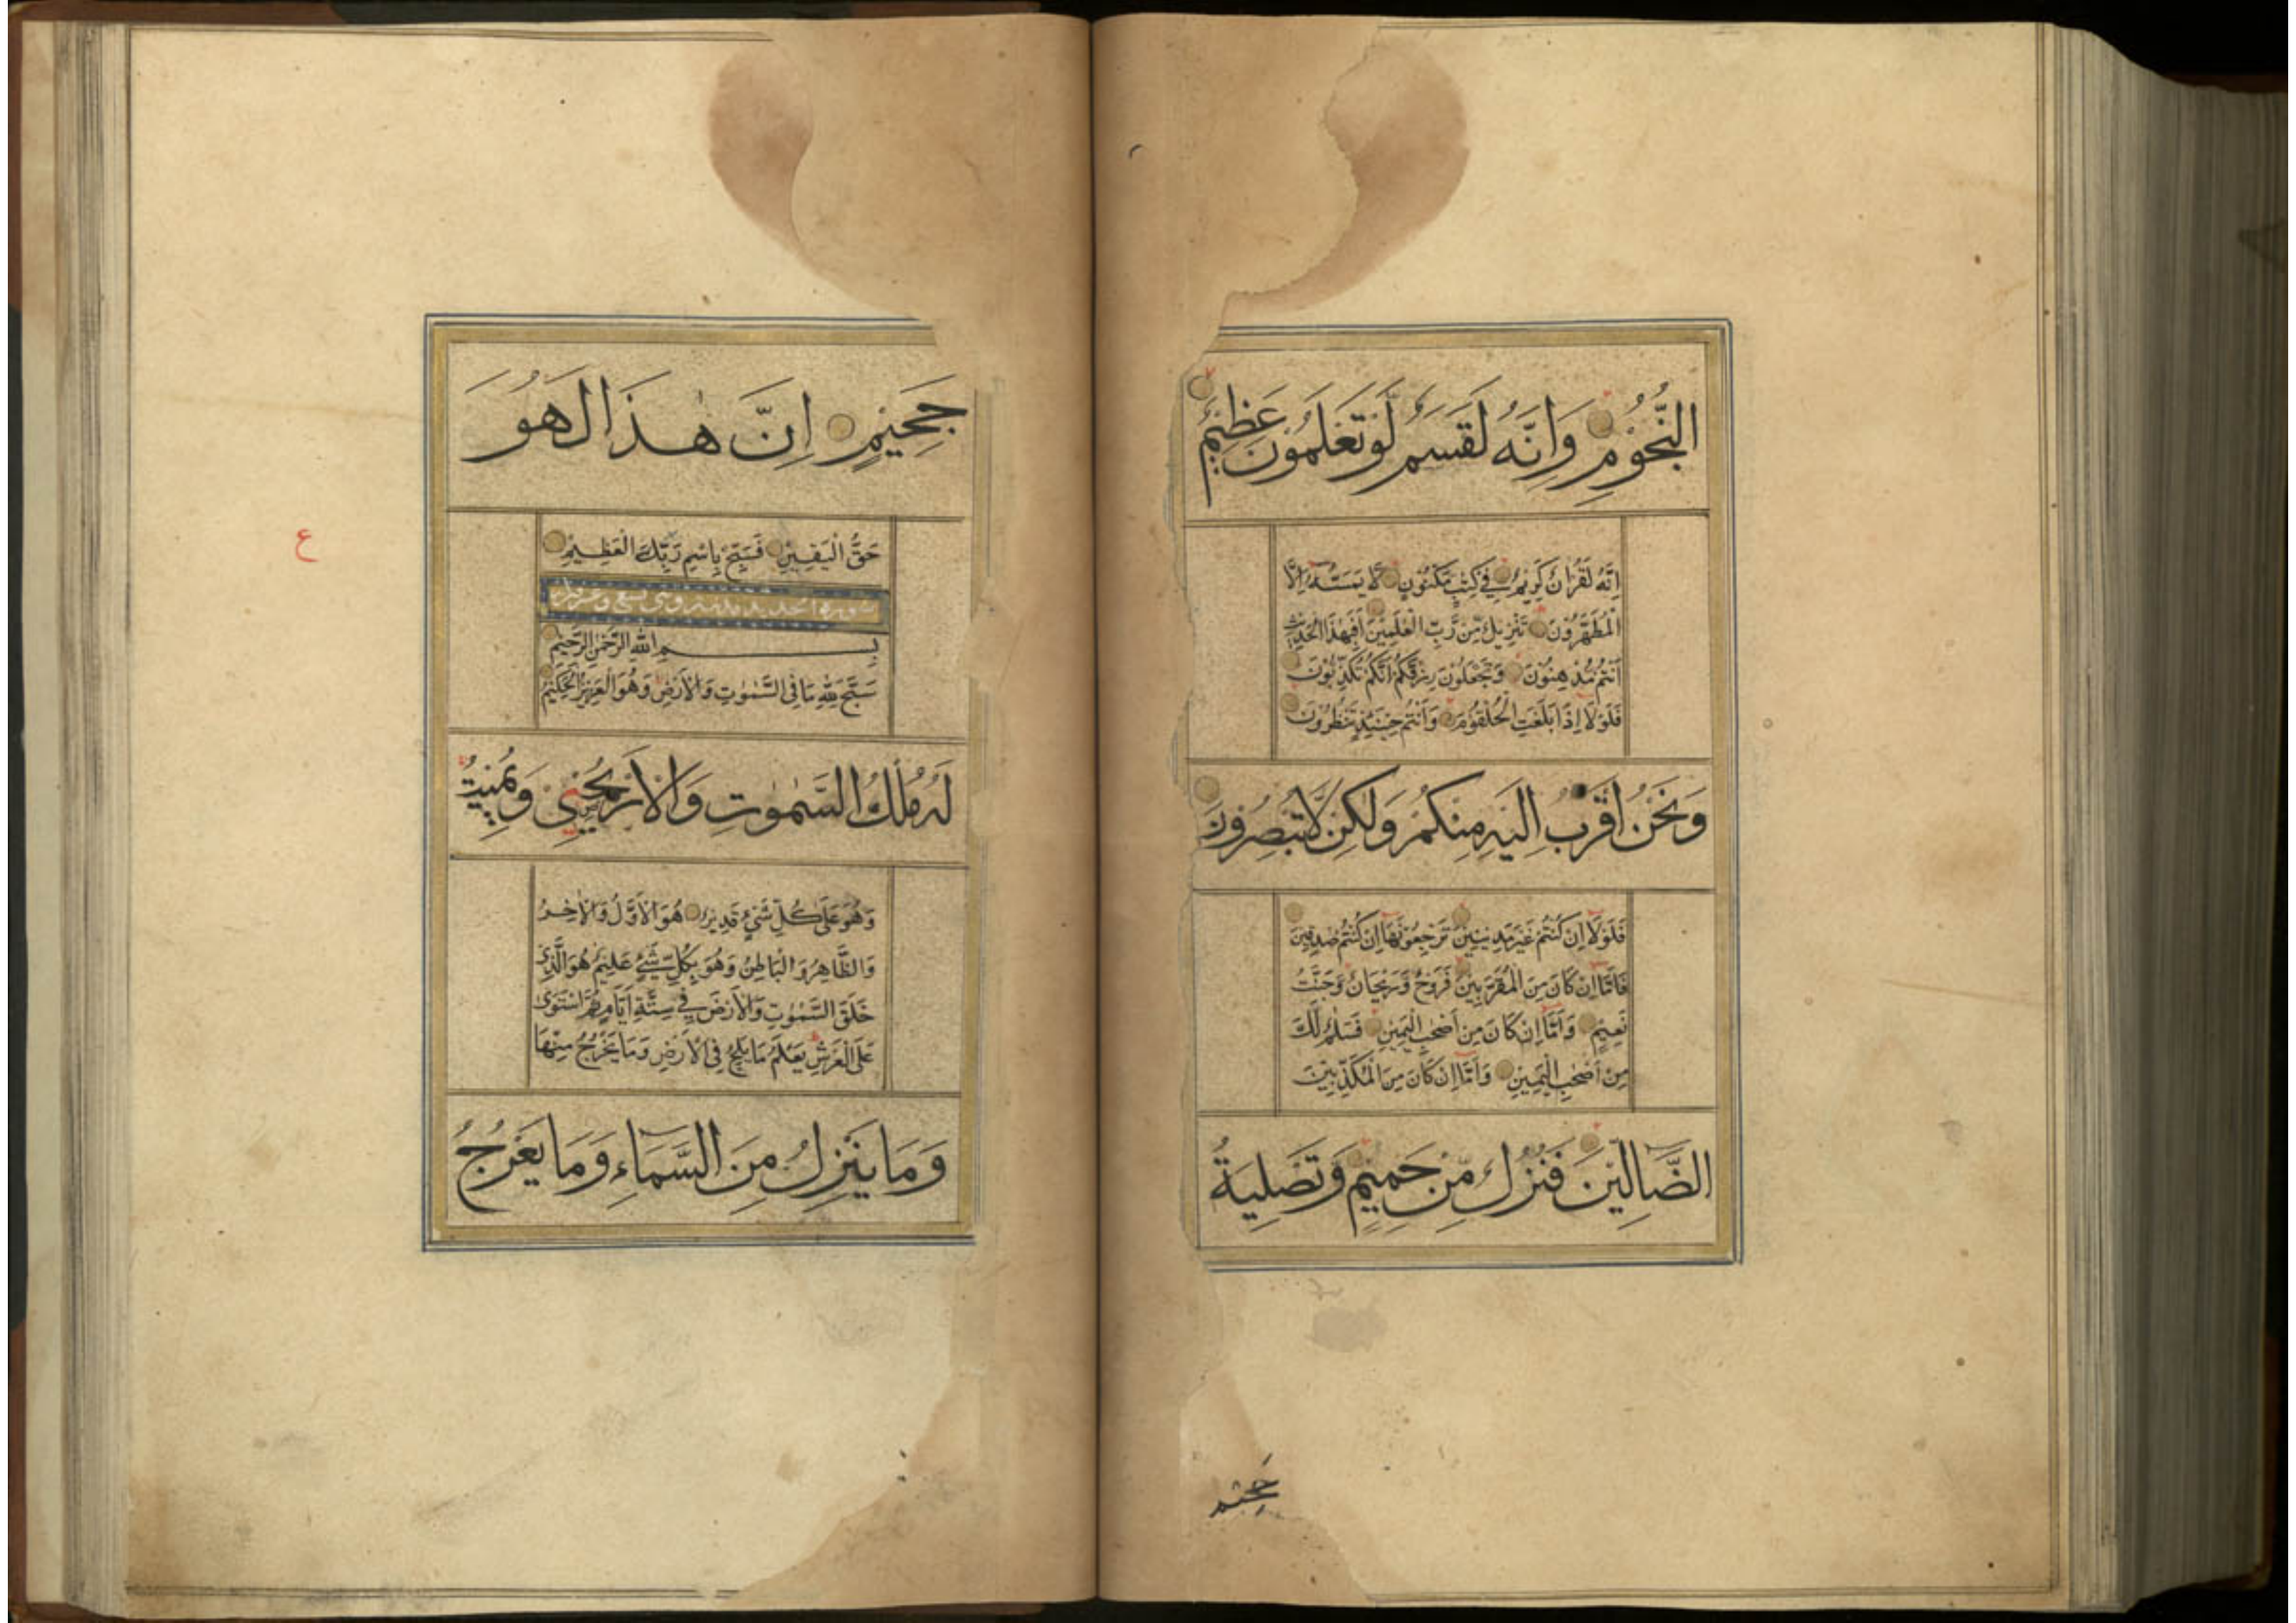 النُّجُوْمِ وَاِنَّهُ لَقَسَمٌ لَوْ تَعْلَمُوْنَ عَظِيْمٌ
اِنَّهُ لَقُرْاٰنٌ كَرِيْمٌ فِيْ كِتٰبٍ مَّكْنُوْنٍ لَا يَمَسُّهُ اِلَّا
الْمُطَهَّرُوْنَ تَنْزِيْلٌ مِّنْ رَّبِّ الْعٰلَمِيْنَ اَفَبِهٰذَا الْحَدِيْثِ
اَنْتُمْ مُّدْهِنُوْنَ وَتَجْعَلُوْنَ رِزْقَكُمْ اَنَّكُمْ تُكَذِّبُوْنَ
فَلَوْلَا اِذَا بَلَغَتِ الْحُلْقُوْمَ وَاَنْتُمْ حِيْنَئِذٍ تَنْظُرُوْنَ
وَنَحْنُ اَقْرَبُ اِلَيْهِ مِنْكُمْ وَلٰكِنْ لَّا تُبْصِرُوْنَ
فَلَوْلَا اِنْ كُنْتُمْ غَيْرَ مَدِيْنِيْنَ تَرْجِعُوْنَهَا اِنْ كُنْتُمْ صٰدِقِيْنَ
فَاَمَّا اِنْ كَانَ مِنَ الْمُقَرَّبِيْنَ فَرَوْحٌ وَّرَيْحَانٌ وَّجَنَّتُ
نَعِيْمٍ وَاَمَّا اِنْ كَانَ مِنْ اَصْحٰبِ الْيَمِيْنِ فَسَلٰمٌ لَّكَ
مِنْ اَصْحٰبِ الْيَمِيْنِ وَاَمَّا اِنْ كَانَ مِنَ الْمُكَذِّبِيْنَ
الضَّالِّيْنَ فَنُزُلٌ مِّنْ حَمِيْمٍ وَّتَصْلِيَةُ
جَحِيْمٍ
جَحِيْمٍ اِنَّ هٰذَا لَهُوَ
حَقُّ الْيَقِيْنِ فَسَبِّحْ بِاسْمِ رَبِّكَ الْعَظِيْمِ
ع
بِسْمِ اللهِ الرَّحْمٰنِ الرَّحِيْمِ
سَبَّحَ لِلّٰهِ مَا فِي السَّمٰوٰتِ وَالْاَرْضِ وَهُوَ الْعَزِيْزُ الْحَكِيْمُ
لَهُ مُلْكُ السَّمٰوٰتِ وَالْاَرْضِ يُحْيِيْ وَيُمِيْتُ
وَهُوَ عَلٰى كُلِّ شَيْءٍ قَدِيْرٌ هُوَ الْاَوَّلُ وَالْاٰخِرُ
وَالظَّاهِرُ وَالْبَاطِنُ وَهُوَ بِكُلِّ شَيْءٍ عَلِيْمٌ هُوَ الَّذِيْ
خَلَقَ السَّمٰوٰتِ وَالْاَرْضَ فِيْ سِتَّةِ اَيَّامٍ ثُمَّ اسْتَوٰى
عَلَى الْعَرْشِ يَعْلَمُ مَا يَلِجُ فِي الْاَرْضِ وَمَا يَخْرُجُ مِنْهَا
وَمَا يَنْزِلُ مِنَ السَّمَاءِ وَمَا يَعْرُجُ